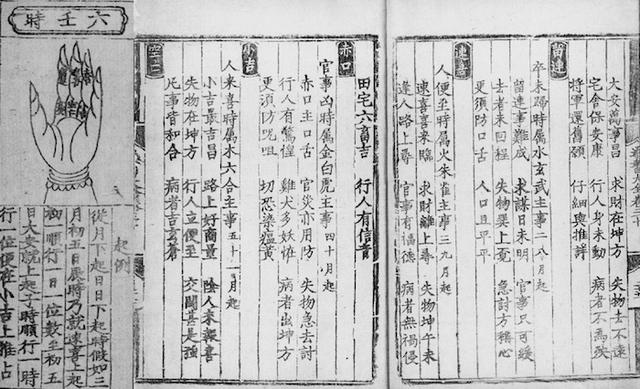 留連
大安萬事昌 求財在坤方 失物去不遠
宅舍保安康 行人身未動 病者不爲殃
將軍還舊願 仔細與推詳
卒未歸時屬水玄武主事二八月起
留連事難成 求謀日未明 官事只可緩
去者未回程 失物巽上覓 急討方稱心
更須防口舌 人口且平平
速喜
人便至時屬火朱雀主事三九月起
速喜喜來臨 求財離上尋 失物坤午未
逢人路上尋 官事有福德 病者無禍侵
田宅六畜吉 行人有信音
赤口
官事凶時屬金白虎主事四十月起
赤口主口舌 官災亦用防 失物急去討
行人有驚惶 雞犬多妖怪 病者出坤方
更須防咒咀 切恐染瘟黄
小吉
人來喜時屬木六合主事五十一月起
小吉最吉昌 路上好商量 陰人來報喜
失物在坤方 行人立便至 交關甚是強
凡事皆和合 病者告穹蒼
空亡
六壬時
起例
從月下起日日下起時假如三
月初五日辰時乃就速喜上起
初一順行一日一位數至初五
日大安就上起子時順行一時
行一位便在小吉上推占